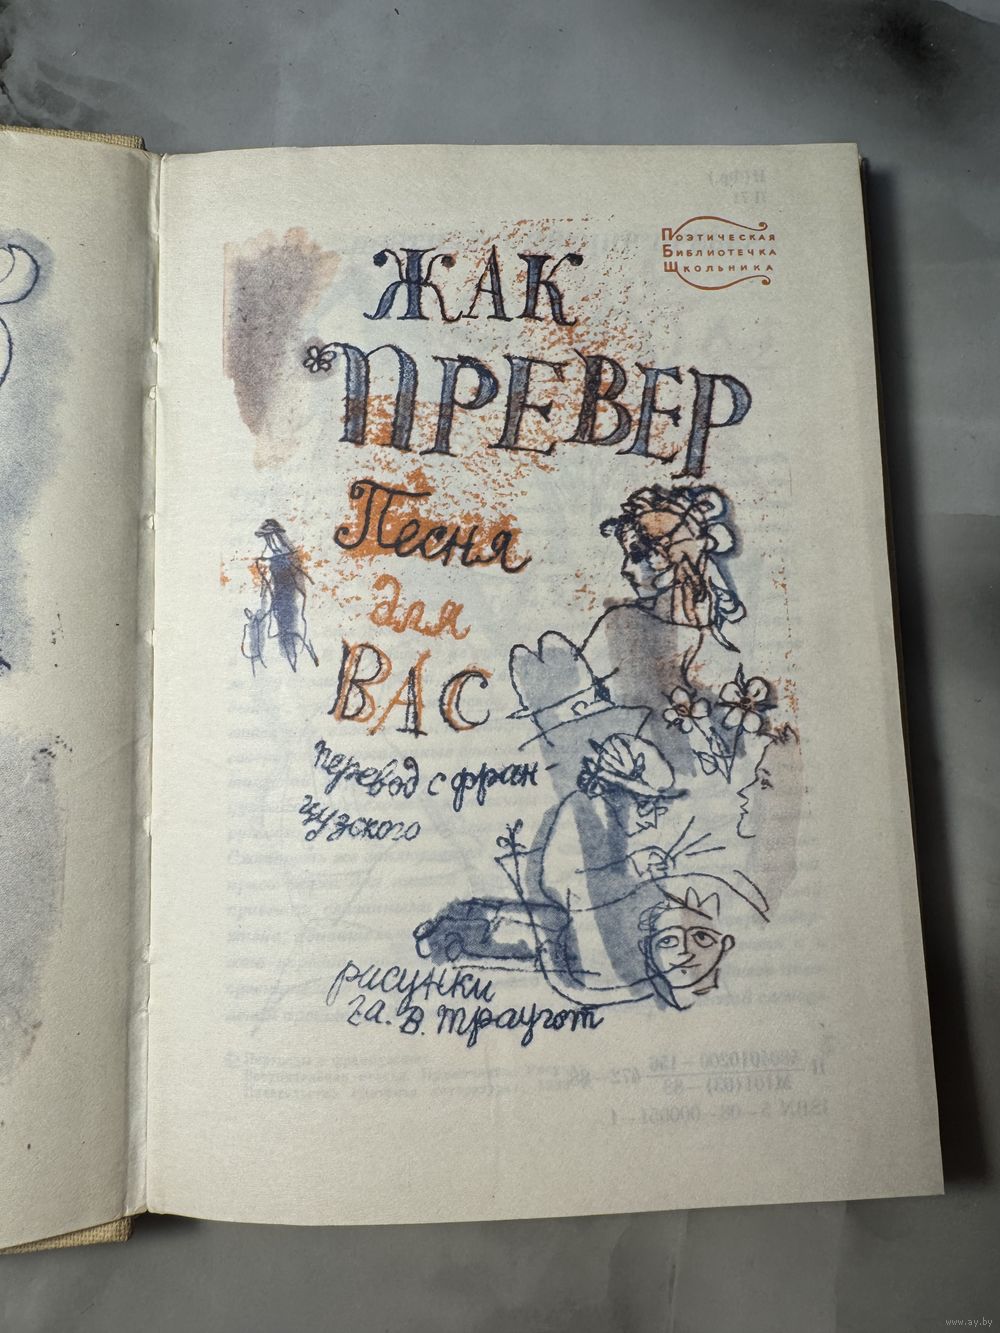 Поэтическая
Библиотечка
Школьника
ЖАК
ПРЕВЕР
Песня
для
ВАС
перевод с фран-
цузского
рисунки
Г.А.В. Траугот
www.ay.by